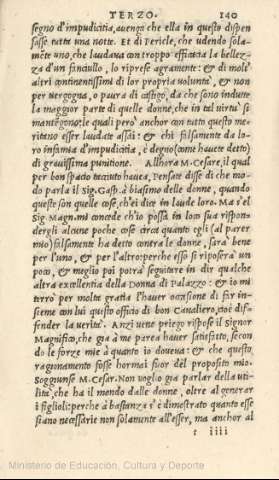 TERZO. 140
segno d'impudicitia, auenga che ella in questo dispen
sasse tutta una notte. Et di Pericle, che udendo sola-
mẽte uno, che laudaua con troppo efficacia la bellez-
za d'un fanciullo, lo riprese agramente: & di molt'
altri continentissimi di lor propria voluntà, & non
per vergogna, o paura di castigo, da che sono indutte
la maggior parte di quelle donne, che in tal virtu' si
mantẽgono; le quali però anchor con tutto questo me-
riteno esser laudate assai: & chi falsamente da lo-
ro infamia d'impudicitia, è degno (come hauete detto)
di grauissima punitione. Allhora M. Cesare, il qual
per bon spacio tacciuto haueua, Pensate disse di che mo-
do parla il Sig. Gasp. à biasimo delle donne, quando
queste son quelle cose, ch'ei dice in laude loro. Ma s'el
Sig. Mag. mi concede ch'io possa in loco suo rispon-
dergli alcune poche cose circa quanto egli (al parer
mio) falsamente ha detto contra le donne, sarà bene
per l'uno, & per l'altro: perche esso si riposerà un
poco, & meglio poi potrà seguitare in dir qualche
altra excellentia della Donna di Palazzo: & io mi
terrò per molta gratia l'hauer occasione di far in-
sieme con lui questo officio di bon Caualiero, cioè dif-
fender la verità. Anzi uene priego rispose il Signor
Magnifico, che già à me parea hauer satisfatto, secon
do le forze mie à quanto io doueua: & che questo
ragionamento fosse hormai fuor del proposito mio.
Soggiunse M. Cesar. Non voglio gia parlar della uti-
lità, che ha il mondo dalle donne, oltre al generar
i figlioli: perche à bastanza s'è dimostrato quanto esse
siano necessarie non solamente all'esser, ma anchor al
iiii
Ministerio de Educación, Cultura y Deporte